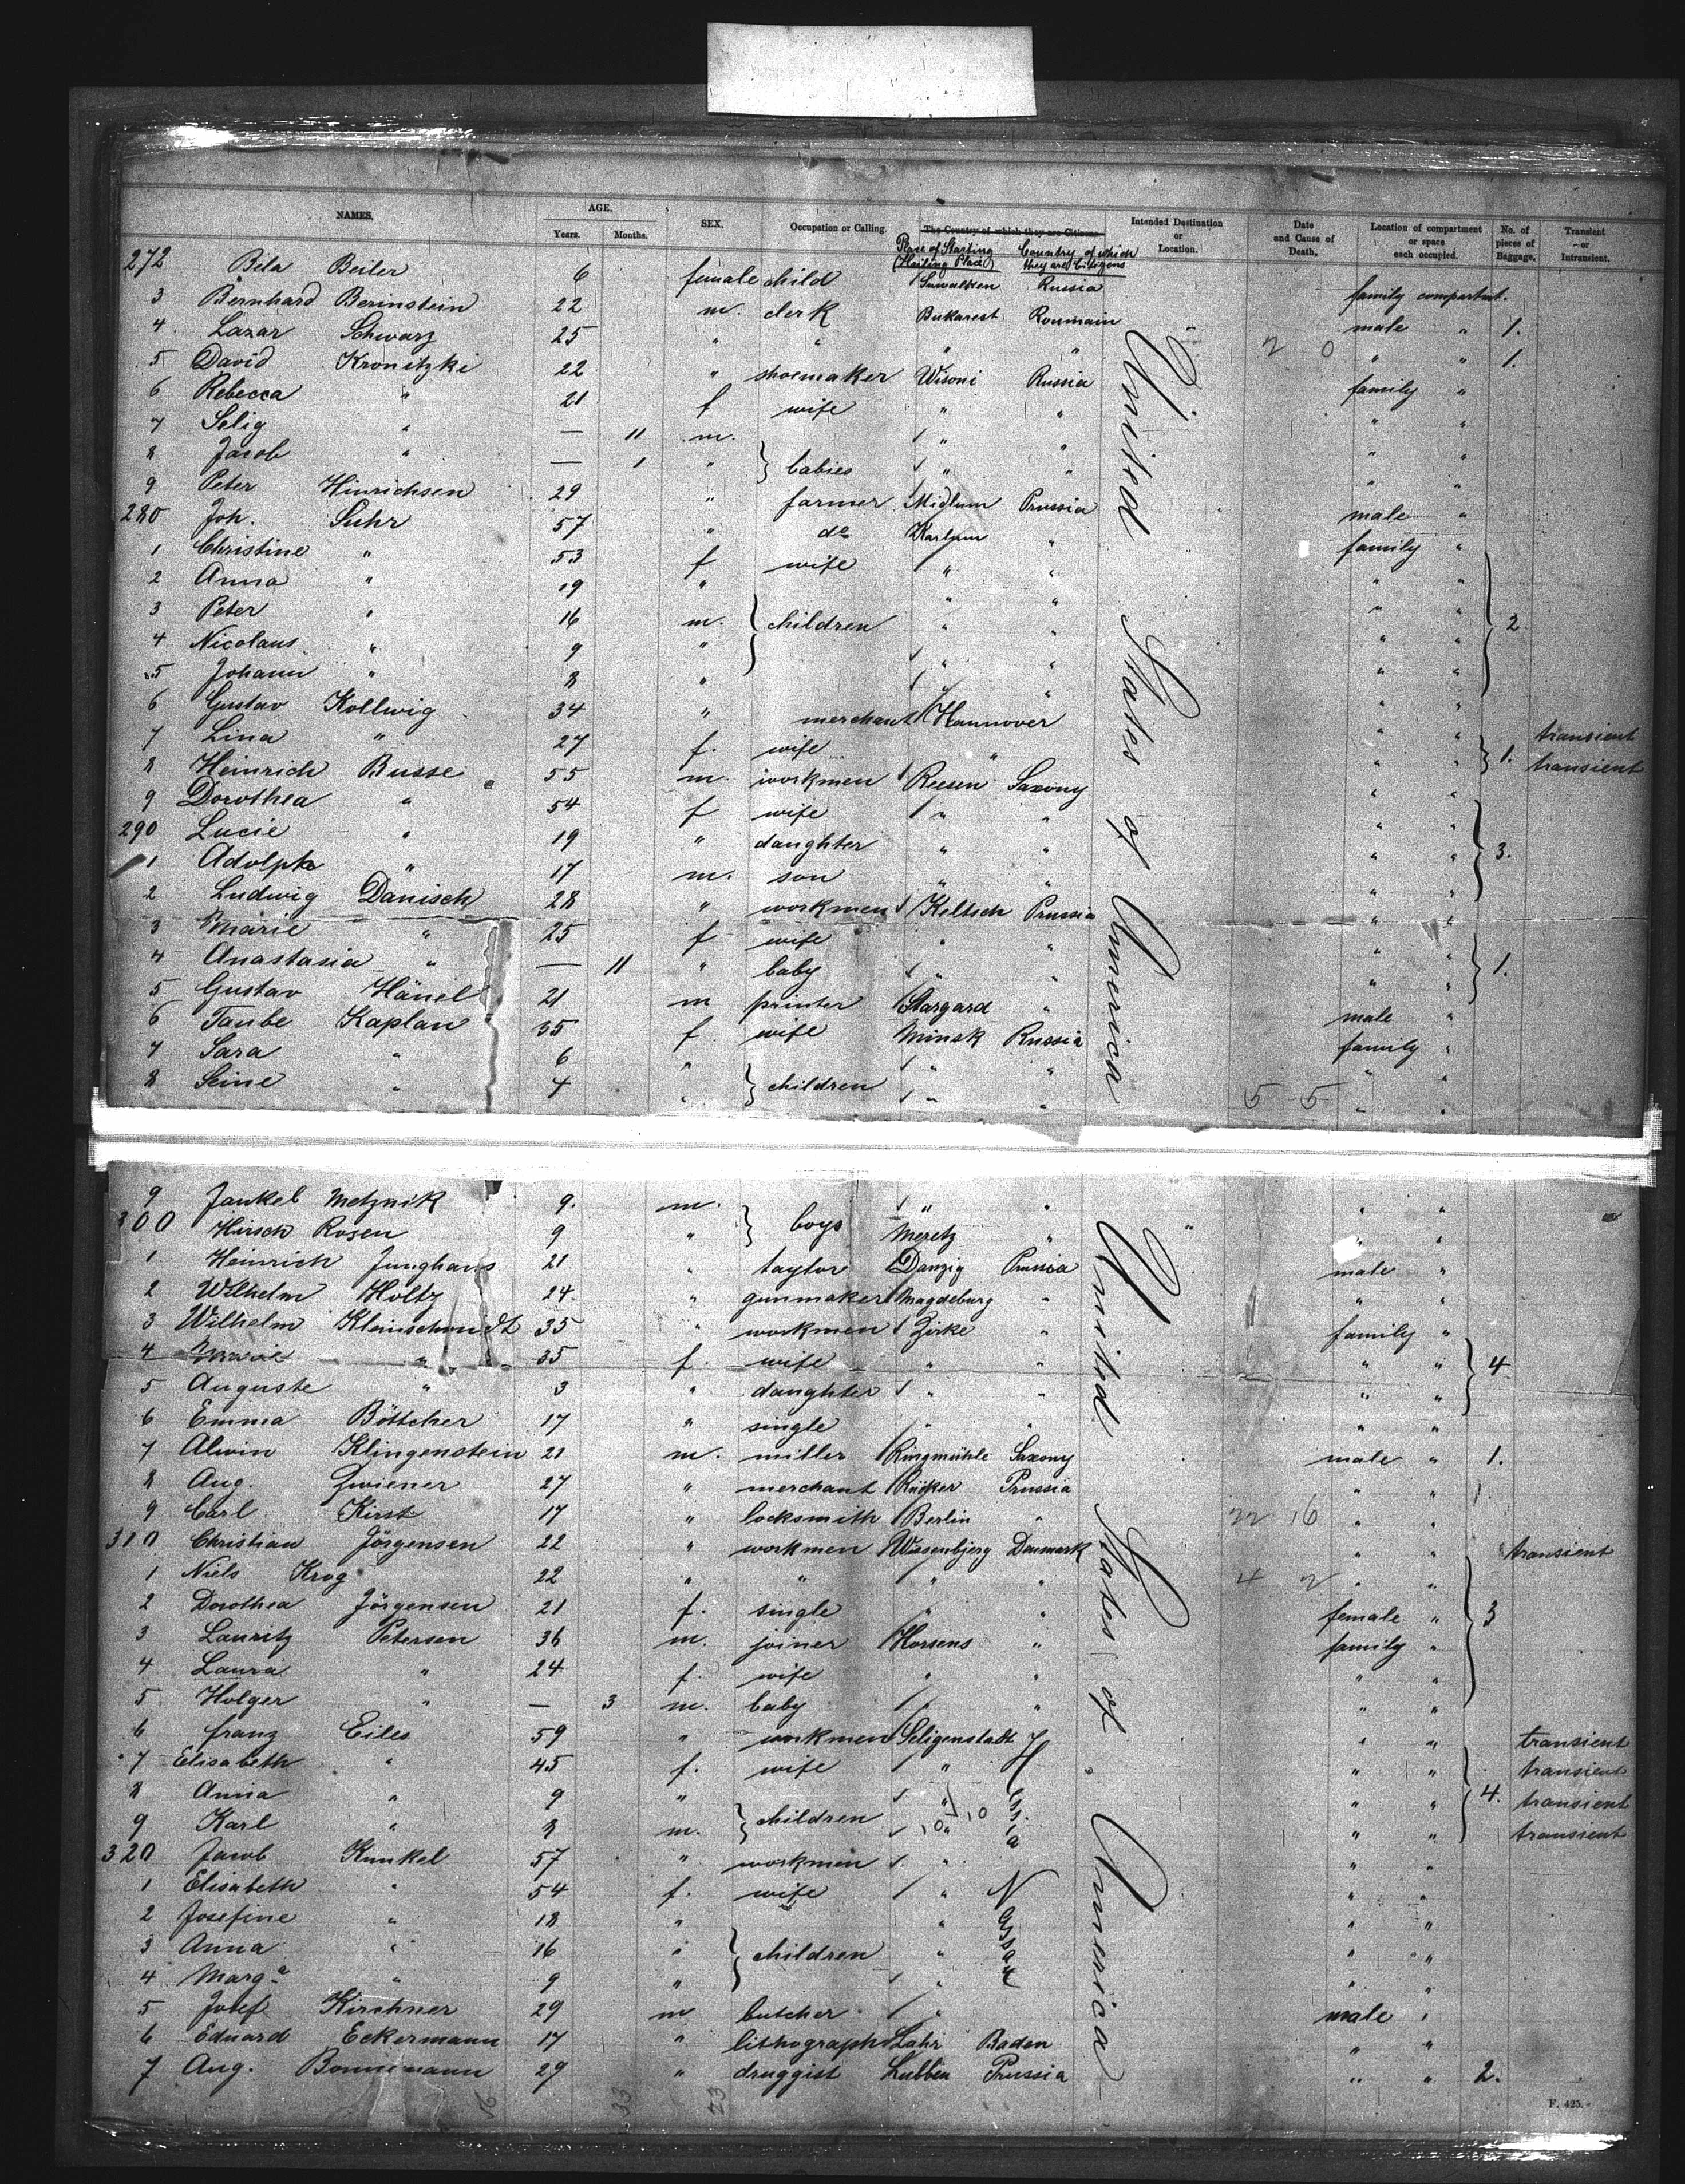 NAMES. AGE. SEX. Occupation or Calling. The Country of which they are Citizens. Intended Destination or Location. Date and Cause of Death. Location of compartment or space each occupied. No. of pieces of Baggage. Transient or Intransient.
Years. Months. Place of Starting (Hailing Place) Country of which they are Citizens
272 Bela Beiler 6 female child Suwalken Russia family compartmt.
3 Bernhard Berinstein 22 m. clerk Bukarest Roumain male " 1.
4 Lazar Schwarz 25 " " " " 2 0 " " 1.
5 David Kronitzki 22 " shoemaker Wisoni Russia family "
6 Rebecca " 21 f wife " " " "
7 Selig " — 11 m. } babies " " " "
8 Jacob " — 1 " " " " "
9 Peter Hinrichsen 29 " farmer Midlum Prussia male "
280 Joh. Suhr 57 " do Karlum " family "
1 Christine " 53 f wife " " " "
2 Anna " 19 " } children " " " " } 2
3 Peter " 16 m. " " " "
4 Nicolaus " 9 " " " " "
5 Johann " 8 " " " " "
6 Gustav Kollwig 34 " merchant Hannover " " } 1. transient
7 Lina " 27 f. wife " " " transient
8 Heinrich Busse 55 m. workmen Reesen Saxony " "
9 Dorothea " 54 f wife " " " " } 3.
290 Lucie " 19 " daughter " " " "
1 Adolph " 17 m. son " " " "
2 Ludwig Danisch 28 " workmen Keltsch Prussia " "
3 Marie " 25 f wife " " " " } 1.
4 Anastasia " — 11 " baby " " " "
5 Gustav Hänel 21 m printer Stargard " male "
6 Taube Kaplan 35 f wife Minsk Russia family "
7 Sara " 6 " } children " " " "
8 Seine " 4 " " " 5 5 " "
United States of America
9 Jankel Metznik 9. m. } boys " " " "
300 Hirsch Rosen 9 " Meretz " " "
1 Heinrich Junghans 21 " taylor Danzig Prussia male "
2 Wilhelm Holtz 24 " gunmaker Magdeburg " " "
3 Wilhelm Kleinschmidt 35 " workmen Zirke " family "
4 Marie " 35 f. wife " " " " } 4
5 Auguste " 3 " daughter " " " "
6 Emma Böttcher 17 " single " " " "
7 Alwin Klingenstein 21 m. miller Ringmühle Saxony male " 1.
8 Aug. Zwiener 27 " merchant Rücker Prussia " " 1.
9 Carl Kirst 17 " locksmith Berlin " 22 16 " "
310 Christian Jörgensen 22 " workmen Wissenbjerg Denmark " " transient
1 Niels Krog 22 " " " " 4 2 " "
2 Dorothea Jörgensen 21 f. single " " female " } 3
3 Lauritz Petersen 36 m. joiner Horsens " family "
4 Laura " 24 f. wife " " " "
5 Holger " — 3 m. baby " " " "
6 Franz Eiles 59 " workmen Seligenstadt " " transient
7 Elisabeth " 45 f. wife " " " } 4. transient
8 Anna " 9 " } children " " " transient
9 Karl " 8 m. " " " transient
320 Jacob Kunkel 57 " workmen " " "
1 Elisabeth " 54 f. wife " " "
2 Josefine " 18 " } children " " "
3 Anna " 16 " " " "
4 Marg.a " 9 " " " "
5 Josef Kirchner 29 m butcher " male "
6 Eduard Eckermann 17 " lithograph Lahr Baden " "
7 Aug. Bonnemann 29 " druggist Lubben Prussia " " 2.
United States of America
16 33 23
F. 425.